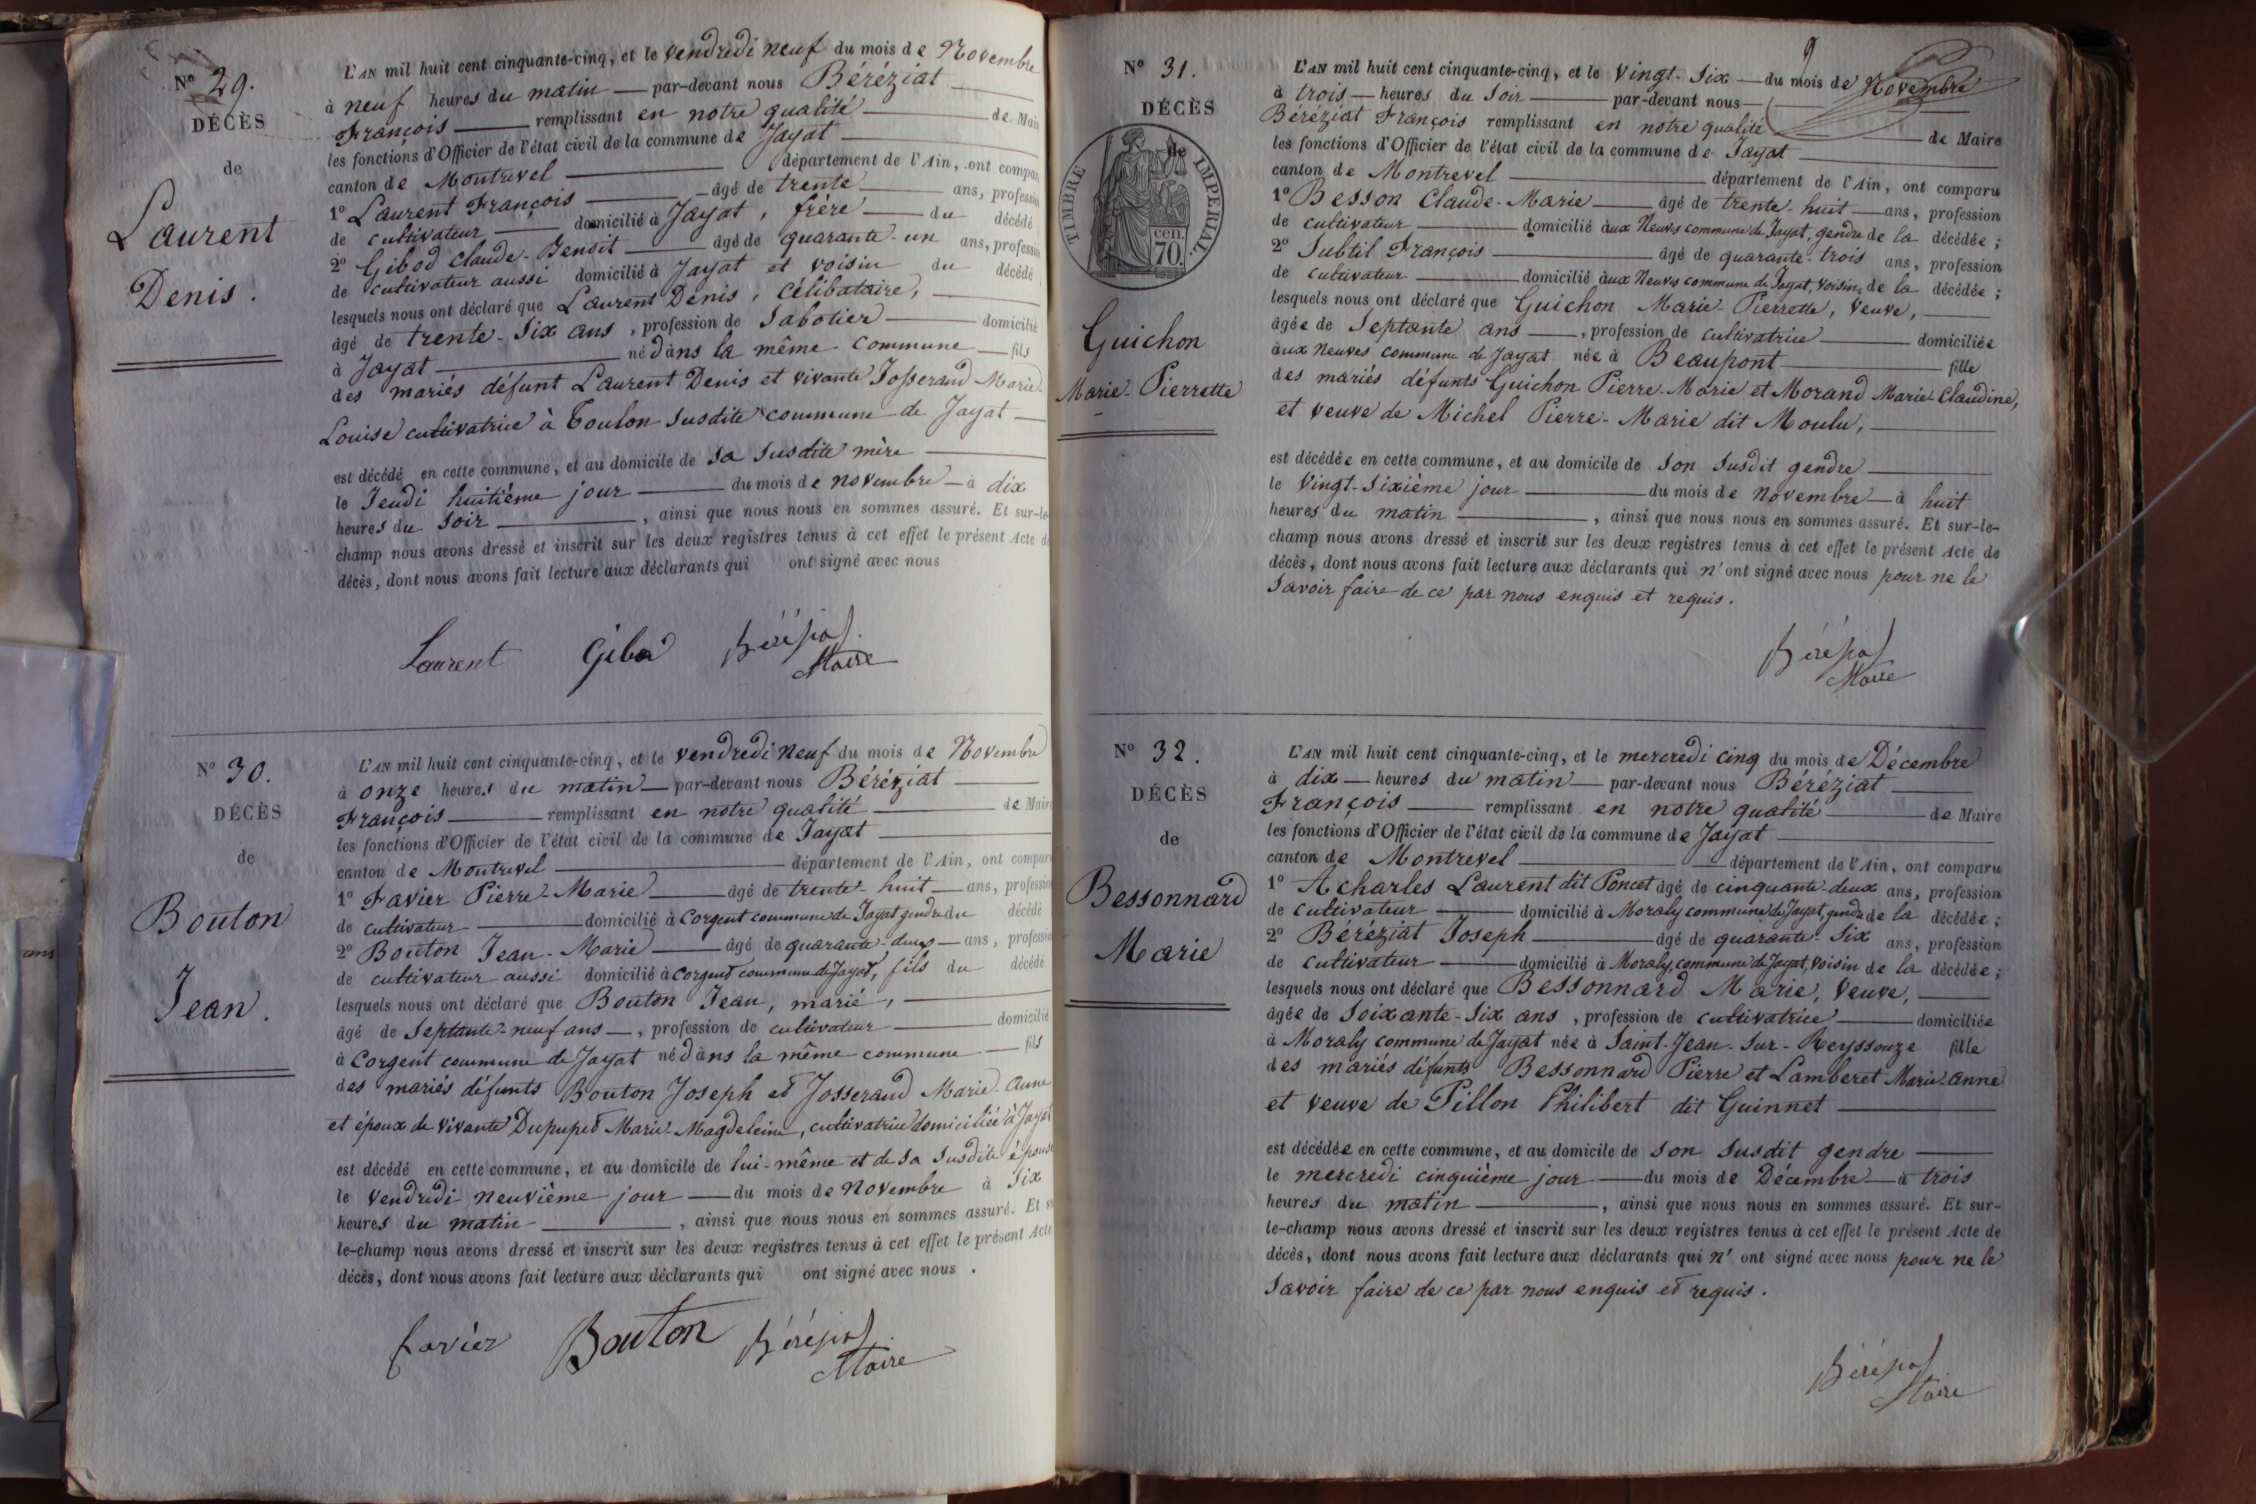 Nº 29.
DÉCÈS
de
Laurent
Denis.
L'AN mil huit cent cinquante-cinq, et le vendredi neuf du mois de Novembre
à neuf heures du matin par-devant nous Béréziat
François remplissant en notre qualité de Mair
les fonctions d'Officier de l'état civil de la commune de Jayat
canton de Montrevel département de l'Ain, ont compar
1º Laurent François âgé de trente ans, profession
de cultivateur domicilié à Jayat, frère du décédé
2º Gibod Claude-Benoit âgé de quarante-un ans, profession
de cultivateur aussi domicilié à Jayat et voisin du décédé
lesquels nous ont déclaré que Laurent Denis, célibataire,
âgé de trente-six ans, profession de Sabotier domicilié
à Jayat né dans la même commune fils
des mariés défunt Laurent Denis et vivante Josserand Marie-
Louise cultivatrice à Toulon susdite commune de Jayat
est décédé en cette commune, et au domicile de sa susdite mère
le Jeudi huitième jour du mois de novembre à dix
heures du soir, ainsi que nous nous en sommes assuré. Et sur-le-
champ nous avons dressé et inscrit sur les deux registres tenus à cet effet le présent Acte de
décès, dont nous avons fait lecture aux déclarants qui ont signé avec nous
Laurent Gibod Béréziat
Maire
Nº 30.
DÉCÈS
de
Bouton
Jean.
L'AN mil huit cent cinquante-cinq, et le vendredi neuf du mois de Novembre
à onze heures du matin par-devant nous Béréziat
François remplissant en notre qualité de Maire
les fonctions d'Officier de l'état civil de la commune de Jayat
canton de Montrevel département de l'Ain, ont comparu
1º Favier Pierre-Marie âgé de trente-huit ans, profession
de cultivateur domicilié à Corgent commune de Jayat gendre du décédé
2º Bouton Jean-Marie âgé de quarante-deux ans, profession
de cultivateur aussi domicilié à Corgent commune de Jayat, fils du décédé
lesquels nous ont déclaré que Bouton Jean, marié,
âgé de Septante-neuf ans, profession de cultivateur domicilié
à Corgent commune de Jayat né dans la même commune fils
des mariés défunts Bouton Joseph et Josserand Marie-Anne
et époux de vivante Dupupet Marie-Magdeleine, cultivatrice domiciliée à Jayat
est décédé en cette commune, et au domicile de lui-même et de sa susdite épouse
le vendredi neuvième jour du mois de novembre à six
heures du matin, ainsi que nous nous en sommes assuré. Et sur
le-champ nous avons dressé et inscrit sur les deux registres tenus à cet effet le présent Acte
décès, dont nous avons fait lecture aux déclarants qui ont signé avec nous.
favier Bouton Béréziat
Maire
9
Nº 31.
DÉCÈS
de
TIMBRE IMPERIAL.
cen.
70.
Guichon
Marie-Pierrette
L'AN mil huit cent cinquante-cinq, et le vingt-six du mois de Novembre
à trois heures du soir par-devant nous
Béréziat François remplissant en notre qualité de Maire
les fonctions d'Officier de l'état civil de la commune de Jayat
canton de Montrevel département de l'Ain, ont comparu
1º Besson Claude-Marie âgé de trente-huit ans, profession
de cultivateur domicilié aux Neuves commune de Jayat, gendre de la décédée;
2º Subtil François âgé de quarante-trois ans, profession
de cultivateur domicilié aux Neuves commune de Jayat, voisin de la décédée;
lesquels nous ont déclaré que Guichon Marie-Pierrette, veuve,
âgée de Septante ans, profession de cultivatrice domiciliée
aux Neuves commune de Jayat née à Beaupont fille
des mariés défunts Guichon Pierre-Marie et Morand Marie-Claudine,
et veuve de Michel Pierre-Marie dit Moulu,
est décédée en cette commune, et au domicile de son susdit gendre
le vingt-sixième jour du mois de novembre à huit
heures du matin, ainsi que nous nous en sommes assuré. Et sur-le-
champ nous avons dressé et inscrit sur les deux registres tenus à cet effet le présent Acte de
décès, dont nous avons fait lecture aux déclarants qui n'ont signé avec nous pour ne le
savoir faire de ce par nous enquis et requis.
Béréziat
Maire
Nº 32.
DÉCÈS
de
Bessonnard
Marie
L'AN mil huit cent cinquante-cinq, et le mercredi cinq du mois de Décembre
à dix heures du matin par-devant nous Béréziat
François remplissant en notre qualité de Maire
les fonctions d'Officier de l'état civil de la commune de Jayat
canton de Montrevel département de l'Ain, ont comparu
1º Acharles Laurent dit Poncet âgé de cinquante-deux ans, profession
de cultivateur domicilié à Moraly commune de Jayat, gendre de la décédée;
2º Béréziat Joseph âgé de quarante-six ans, profession
de cultivateur domicilié à Moraly, commune de Jayat, voisin de la décédée;
lesquels nous ont déclaré que Bessonnard Marie, veuve,
âgée de soixante-six ans, profession de cultivatrice domiciliée
à Moraly commune de Jayat née à Saint-Jean-sur-Reyssouze fille
des mariés défunts Bessonnard Pierre et Lamberet Marie-Anne
et veuve de Pillon Philibert dit Guinnet
est décédée en cette commune, et au domicile de son susdit gendre
le mercredi cinquième jour du mois de Décembre à trois
heures du matin, ainsi que nous nous en sommes assuré. Et sur-
le-champ nous avons dressé et inscrit sur les deux registres tenus à cet effet le présent Acte de
décès, dont nous avons fait lecture aux déclarants qui n'ont signé avec nous pour ne le
savoir faire de ce par nous enquis et requis.
Béréziat
Maire